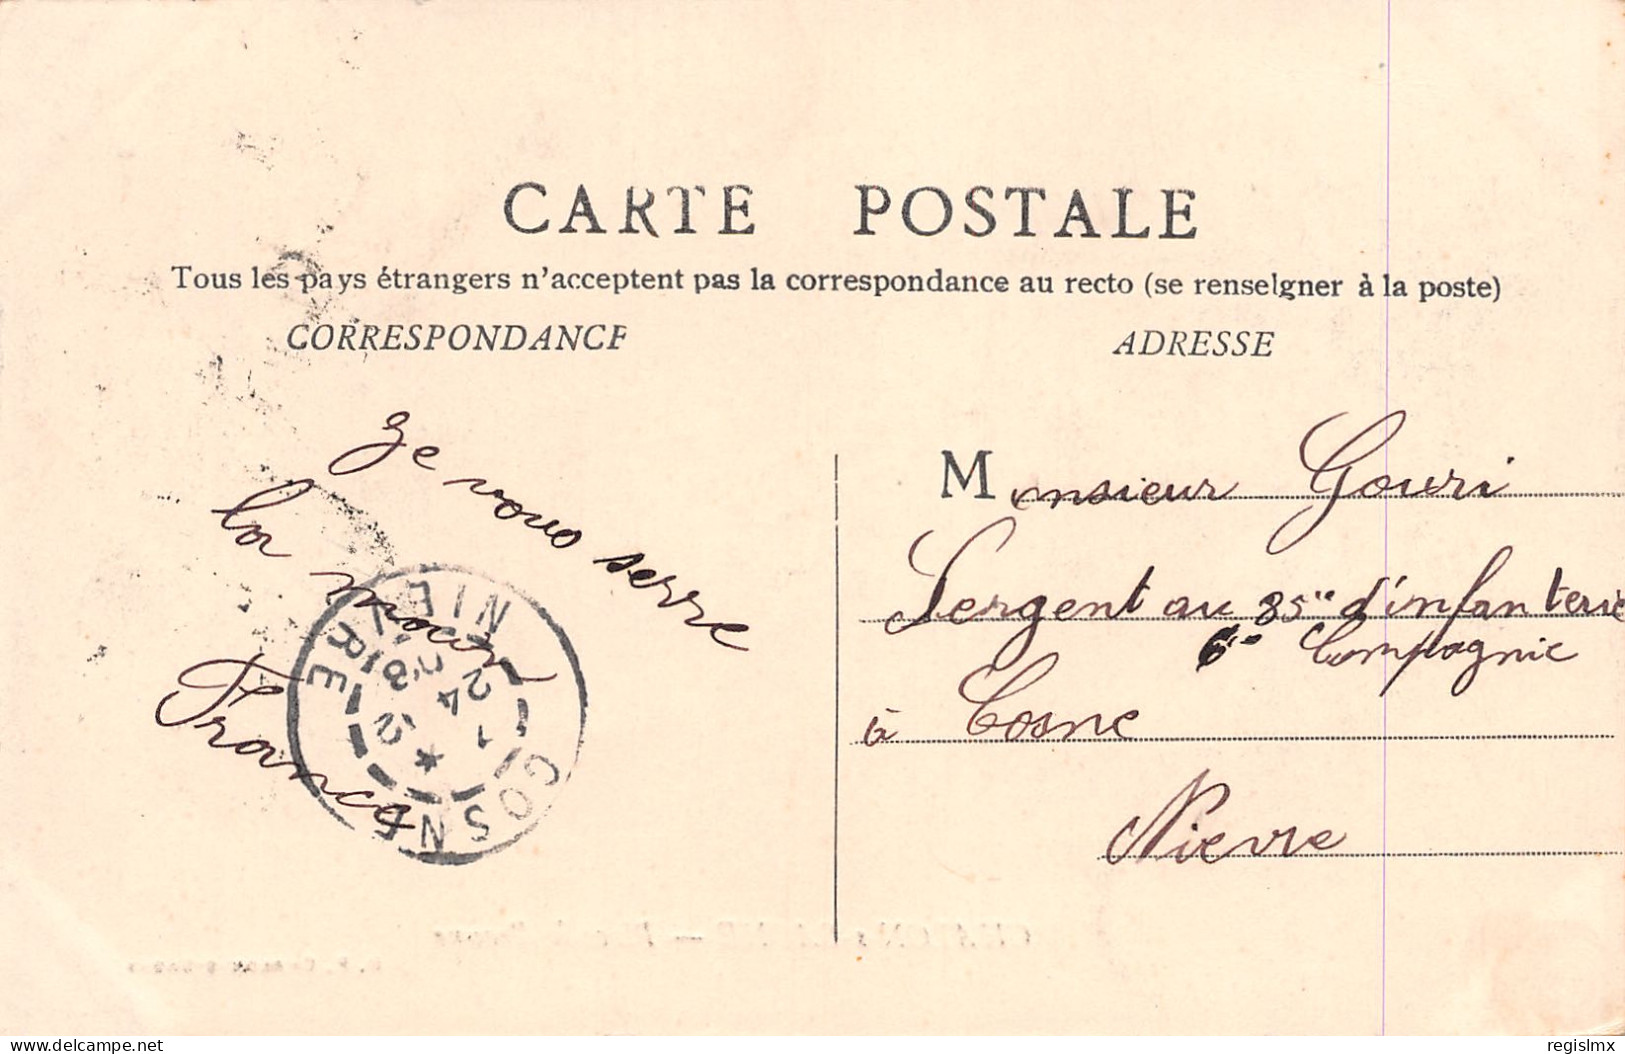 CARTE POSTALE
Tous les pays étrangers n'acceptent pas la correspondance au recto (se renseigner à la poste)
CORRESPONDANCE
ADRESSE
Je vous serre
la main
France
Monsieur Gouri
Sergent au 85e d'infanterie
6e Compagnie
à Cosne
Nièvre
COSNE
NIÈVRE
24
08
CHALON s SAÔNE
delcampe.net
regislmx